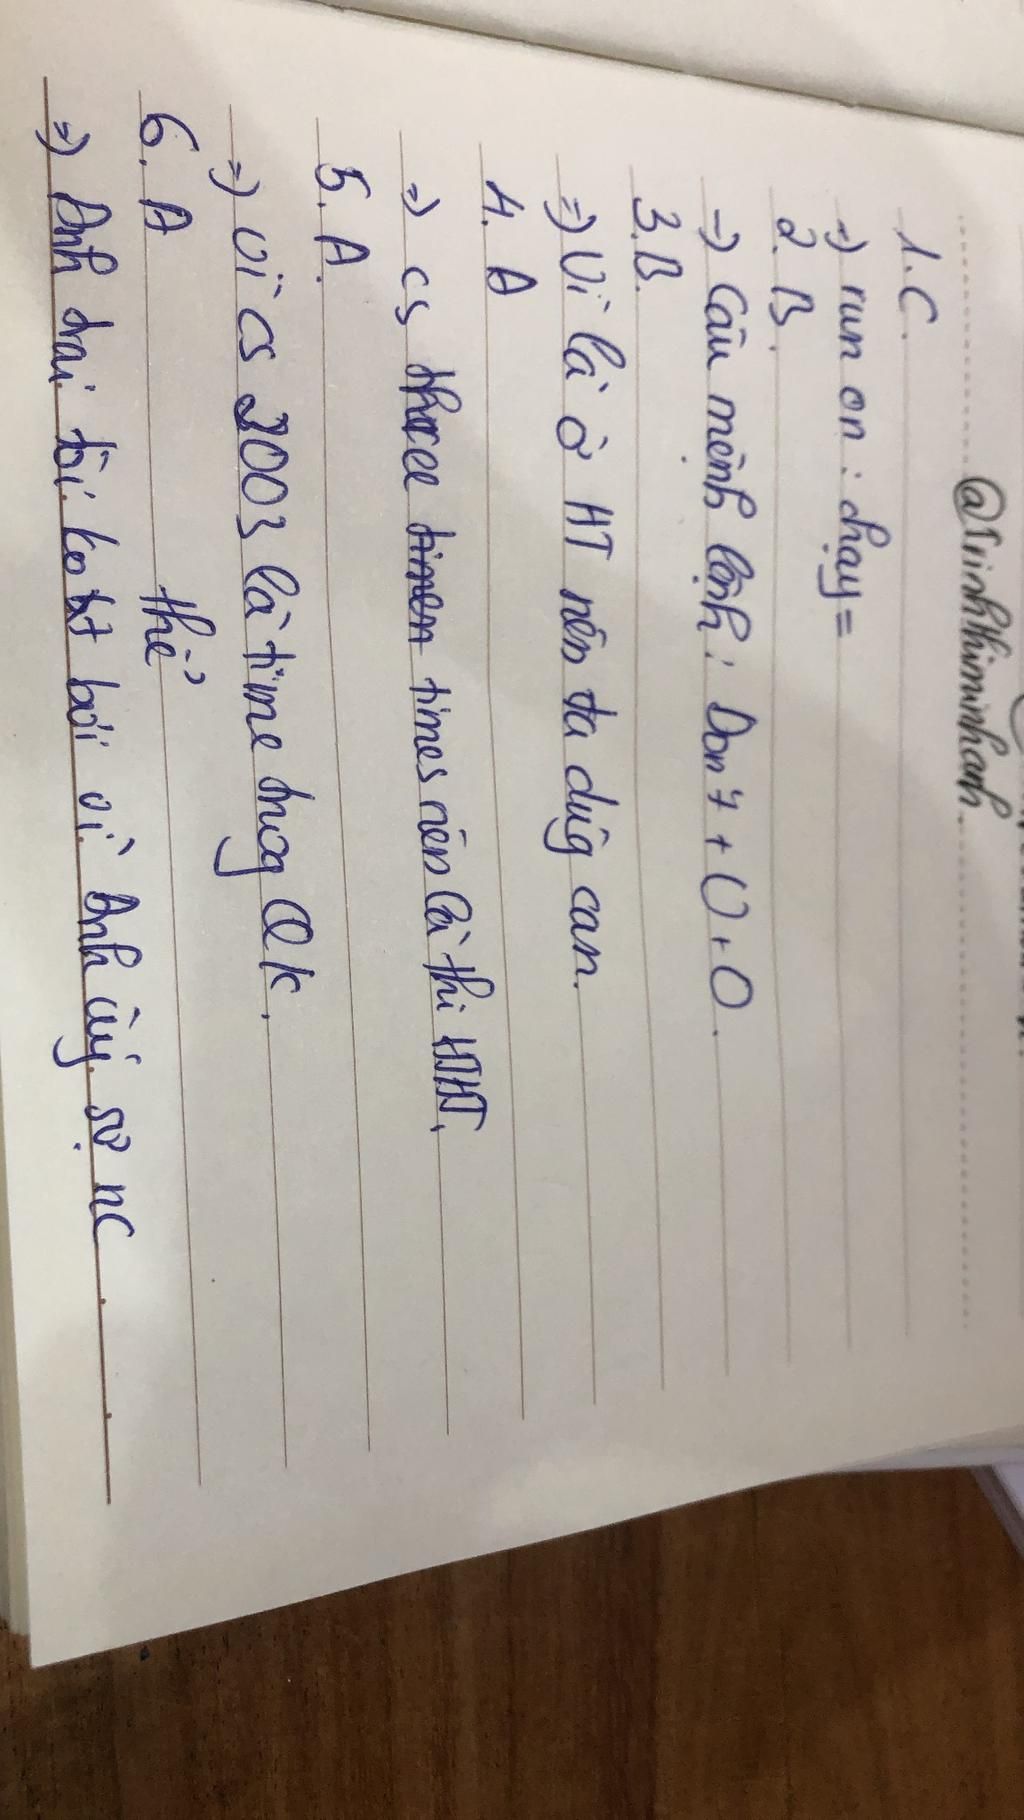 @Trinhthiminhanh
1. C.
=> run on : chạy =
2. B.
=> Câu mệnh lệnh : Don't + V + O.
3. B.
=> Vì là ở HT nên ta dùg can.
4. A
=> cs three times nên là thì HTHT.
5. A.
=> vì cs 2003 là time trog QK.
6. A
thể
=> Anh trai tôi ko bơi vì Anh ấy sợ nc